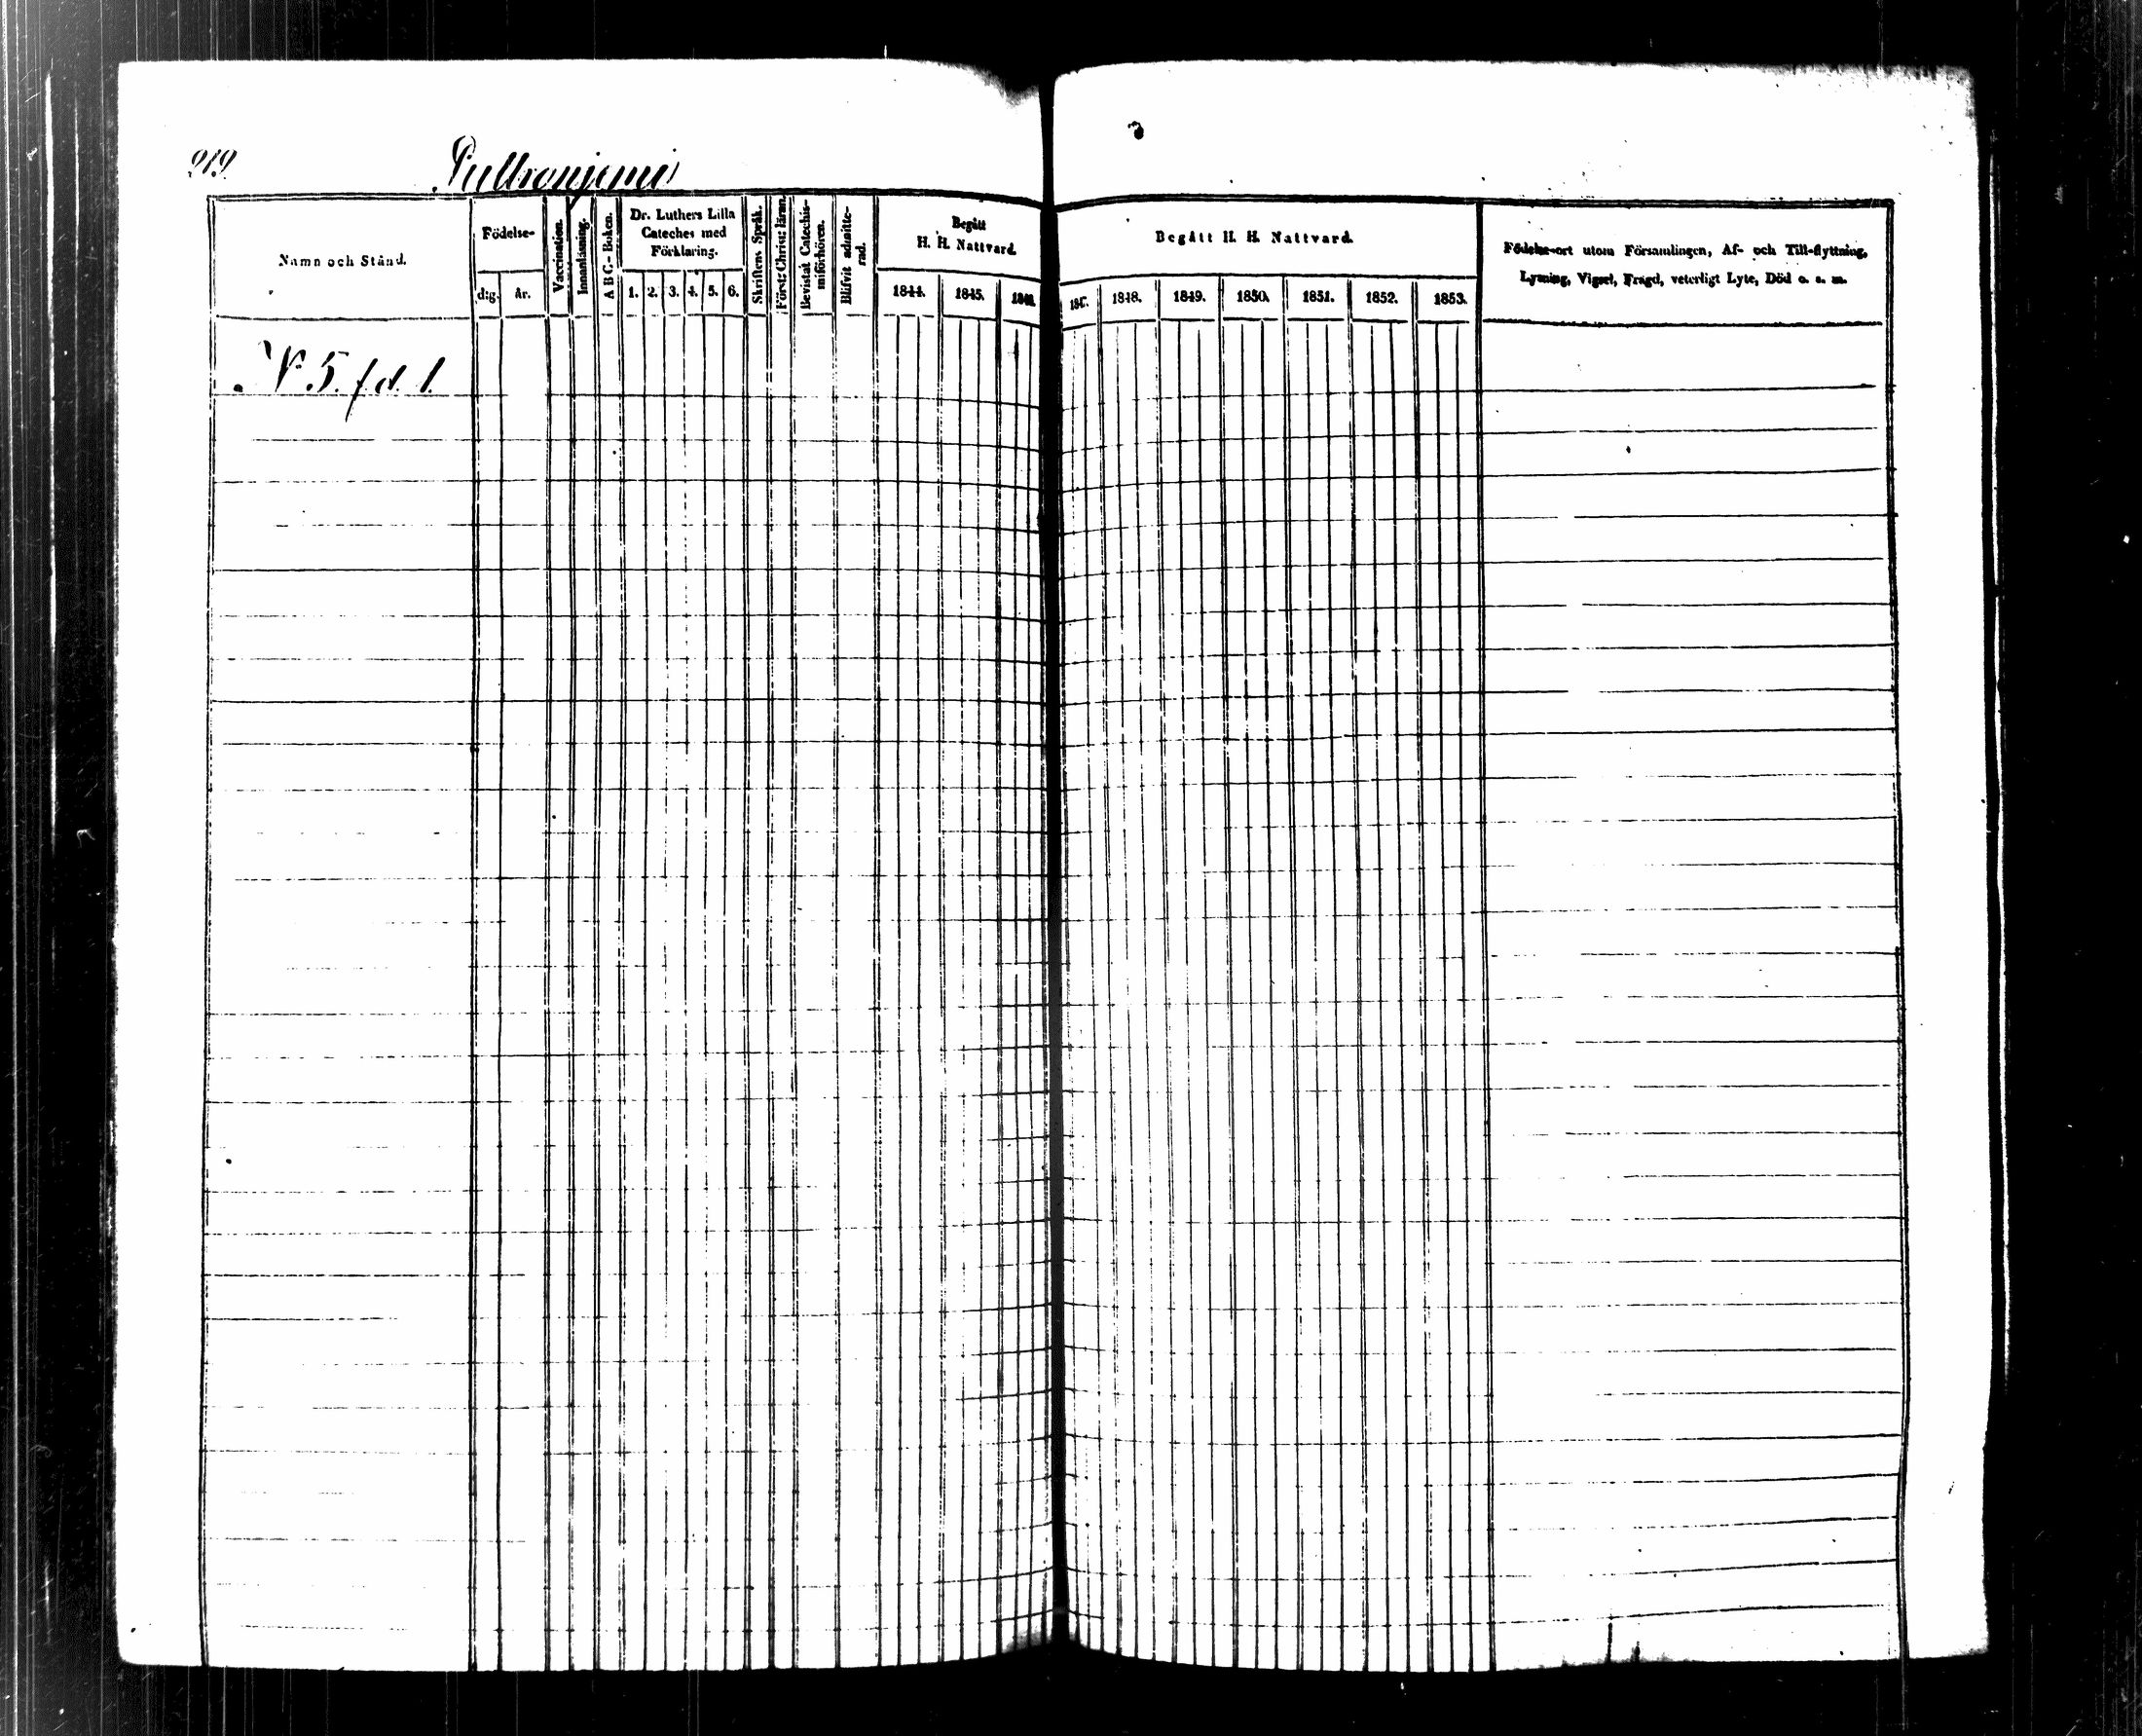 219
Pullronjemi
Namn och Stånd.
Födelse-
d:g.
år.
Vaccination.
Innanläsning.
A B C.- Boken.
Dr. Luthers Lilla
Cateches med
Förklaring.
1. 2. 3. 4. 5. 6.
Skriftens Språk.
Först: Christ: läran.
Bevistat Catechis-
miförhören.
Blifvit admitte-
rad.
Begått
H. H. Nattvard.
1844. 1845. 1846.
Begått H. H. Nattvard.
1847. 1848. 1849. 1850. 1851. 1852. 1853.
Födelse-ort utom Församlingen, Af- och Till-flyttning,
Lysning, Vigsel, Frägd, veterligt Lyte, Död o. s. m.
N 5. f.d. 1.